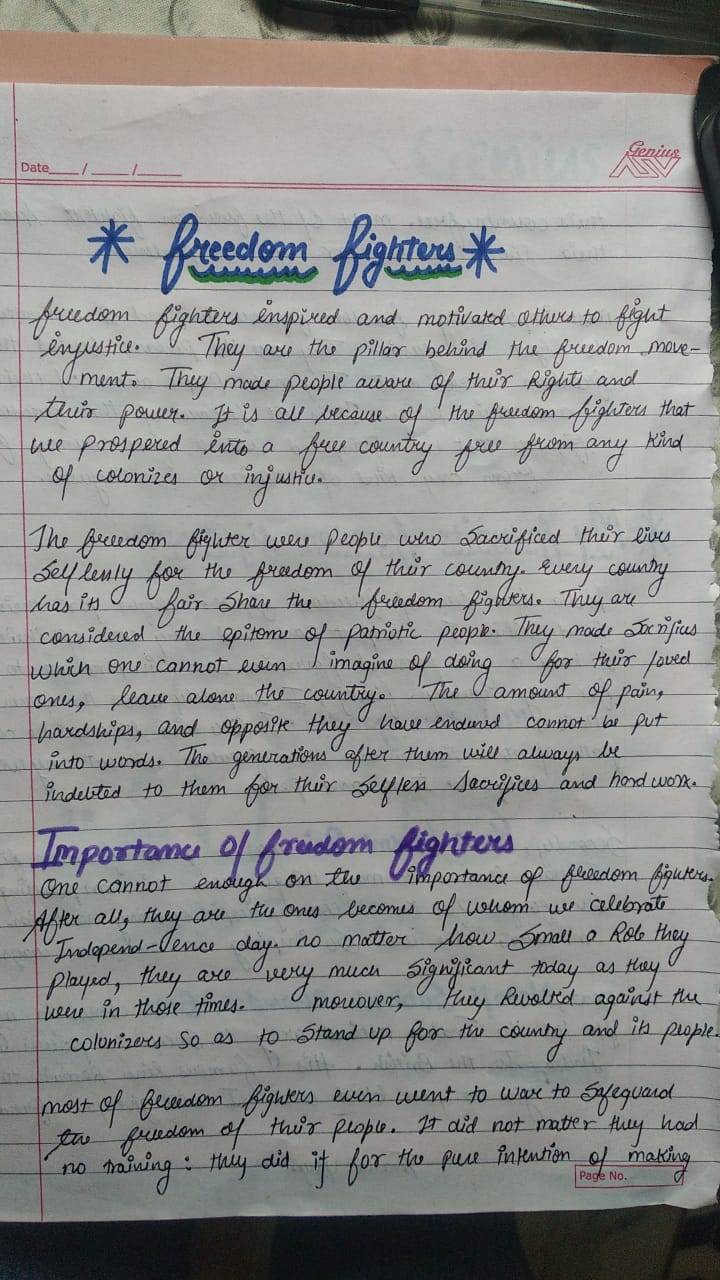 Date___/___/___
Genius
* freedom fighters *
freedom fighters inspired and motivated others to fight
injustice. They are the pillar behind the freedom move-
ment. They made people aware of their Rights and
their power. It is all because of the freedom fighters that
we prospered into a free country free from any kind
of colonizes or injustice.
The freedom fighter were people who Sacrificed their lives
Selflessly for the freedom of their country. Every country
has its fair Share the freedom fighters. They are
considered the epitome of patriotic people. They made Sacrifices
which one cannot even imagine of doing for their loved
ones, leave alone the country. The amount of pain,
hardships, and opposite they have endured cannot be put
into words. The generations after them will always be
indebted to them for their Selfless Sacrifices and hard work.
Importance of freedom fighters
One cannot enough on the importance of freedom fighters.
After all, they are the ones becomes of whom we celebrate
Independ-ence day. no matter how Small a Role they
played, they are very much Significant today as they
were in those times. moreover, they Revolted against the
colonizers So as to Stand up for the country and its people.
most of freedom fighters even went to war to Safeguard
the freedom of their people. It did not matter they had
no training : they did it for the pure intention of making
Page No.